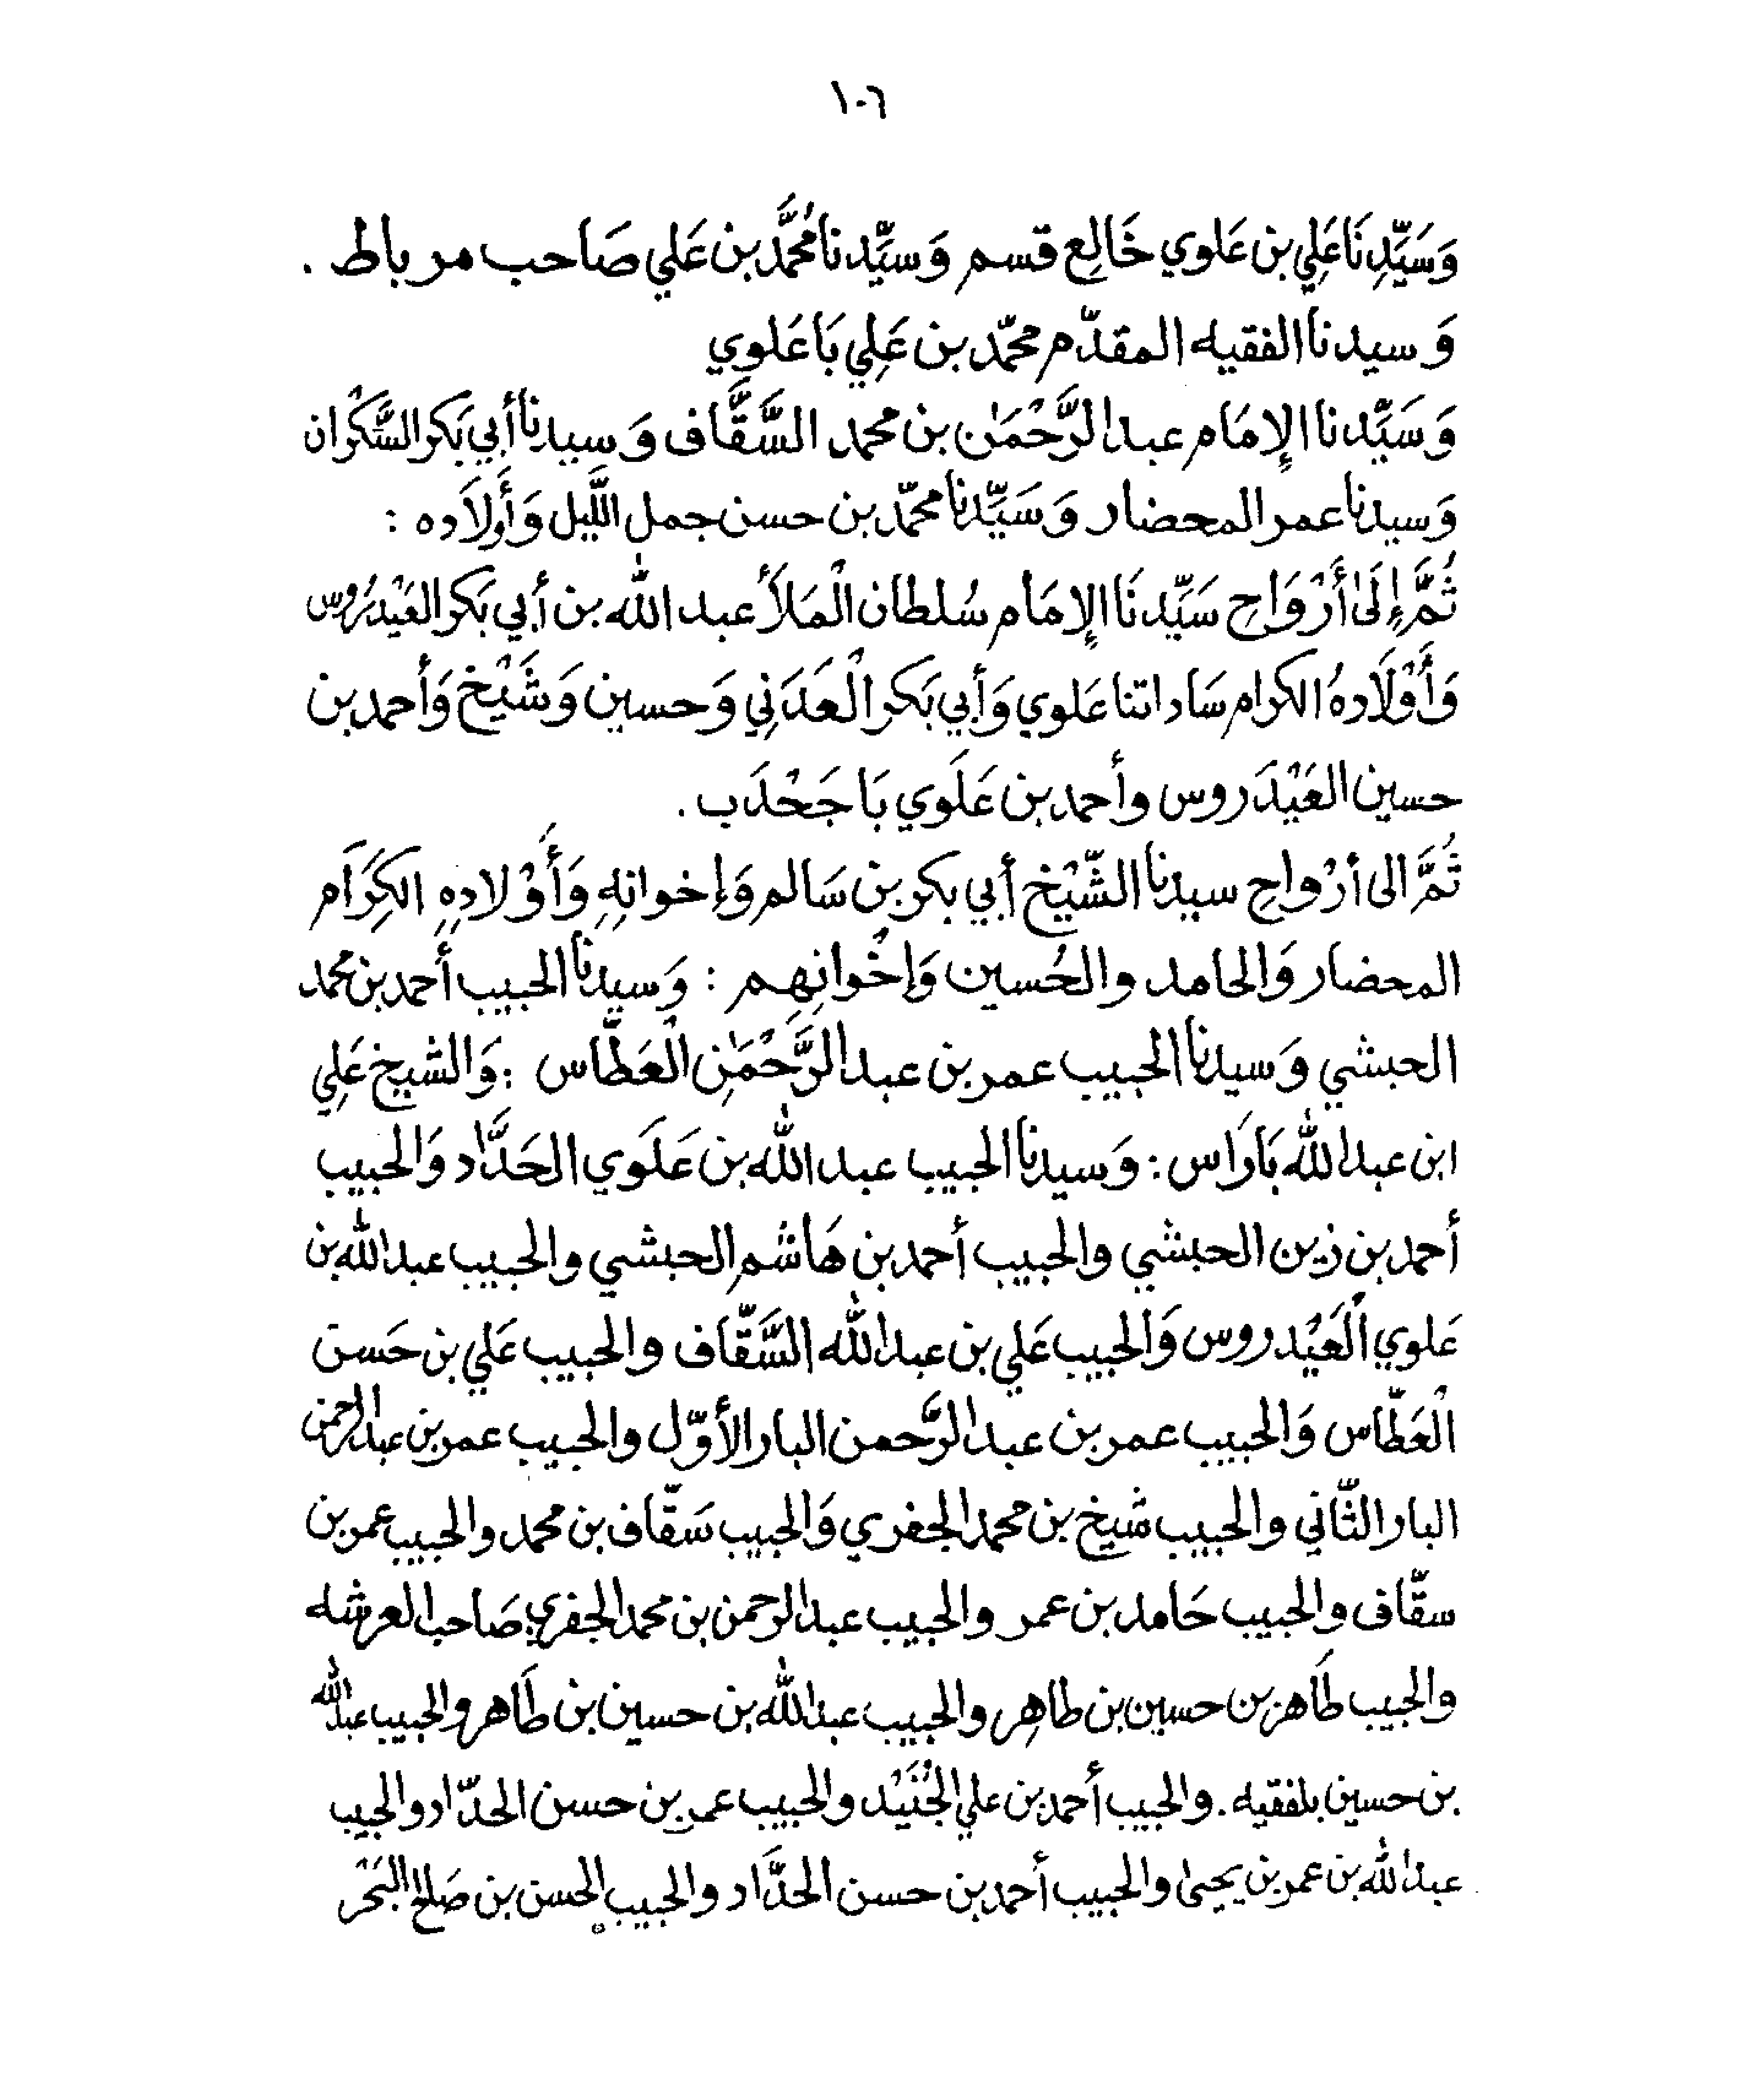 ١٠٦
وَسَيِّدِنَا عَلِي بن عَلوي خَالِع قسم وَسَيِّدنا مُحَمَّد بن عَلي صَاحب مرباط .
وَسيدنا الفقيه المقدّم محمّد بن عَلِي بَا عَلوِي
وَسَيِّدنا الإِمَام عبد الرَّحْمَٰن بن محمد السَّقَّاف وَسيدنا أبي بَكر السَّكْرَان
وَسيدنا عمر المحضار وَسَيِّدنا محمّد بن حسن جمل اللَّيل وَأَولَاده :
ثُمَّ إِلَىٰ أَرْوَاحِ سَيِّدنَا الإِمَام سُلطان الْمَلَأ عبد الله بن أبي بَكر العَيْدَرُوس
وَأَوْلَادهُ الكرام سَاداتنا عَلوي وَأَبي بَكر الْعَدَنِي وَحسين وَشَيْخ وَأحمد بن
حسين العَيْدَروس وأحمد بن عَلَوي بَا جَحْدَب .
ثُمَّ الى أرْواحِ سيدنا الشَّيْخ أبي بكر بن سَالم وَإخوانِهِ وَأَوْلادِهِ الكِرَام
المحضار وَالحامد والحُسين وَإخْوانِهِم : وَسيدنا الحبيب أحمد بن محمد
الحبشي وَسيدنا الحبيب عمر بن عبد الرَّحْمَٰنِ الْعَطَّاس : وَالشيخ عَلِي
ابن عبد الله بَارَاس : وَسيدنا الحبيب عبد الله بن عَلَوي الحَدَّاد وَالحبيب
أحمد بن زين الحبشي والحبيب أحمد بن هَاشم الحبشي والحبيب عبد الله بن
عَلوي الْعَيْدروس وَالحبيب عَلي بن عبد الله السَّقّاف والحبيب عَلي بن حَسن
الْعَطّاس وَالحبيب عمر بن عبد الرَّحمن البار الأوّل والحبيب عمر بن عبد الرحمن
البار الثّاني والحبيب شيخ بن محمد الجفري وَالحبيب سَقّاف بن محمد والحبيب عمر بن
سقّاف والحبيب حَامد بن عمر والحبيب عبد الرحمن بن محمد الجفري صَاحب العرشه
والحبيب طَاهر بن حسين بن طاهِر والحبيب عبد الله بن حسين بن طَاهر والحبيب عبد الله
بن حسين بلفقيه . والحبيب أحمد بن علي الجُنَيْد والحبيب عمر بن حسن الحدّاد والحبيب
عبد الله بن عمر بن يحيىٰ والحبيب أحمد بن حسن الحدَّاد والحبيب الحسن بن صَالح البَحْر